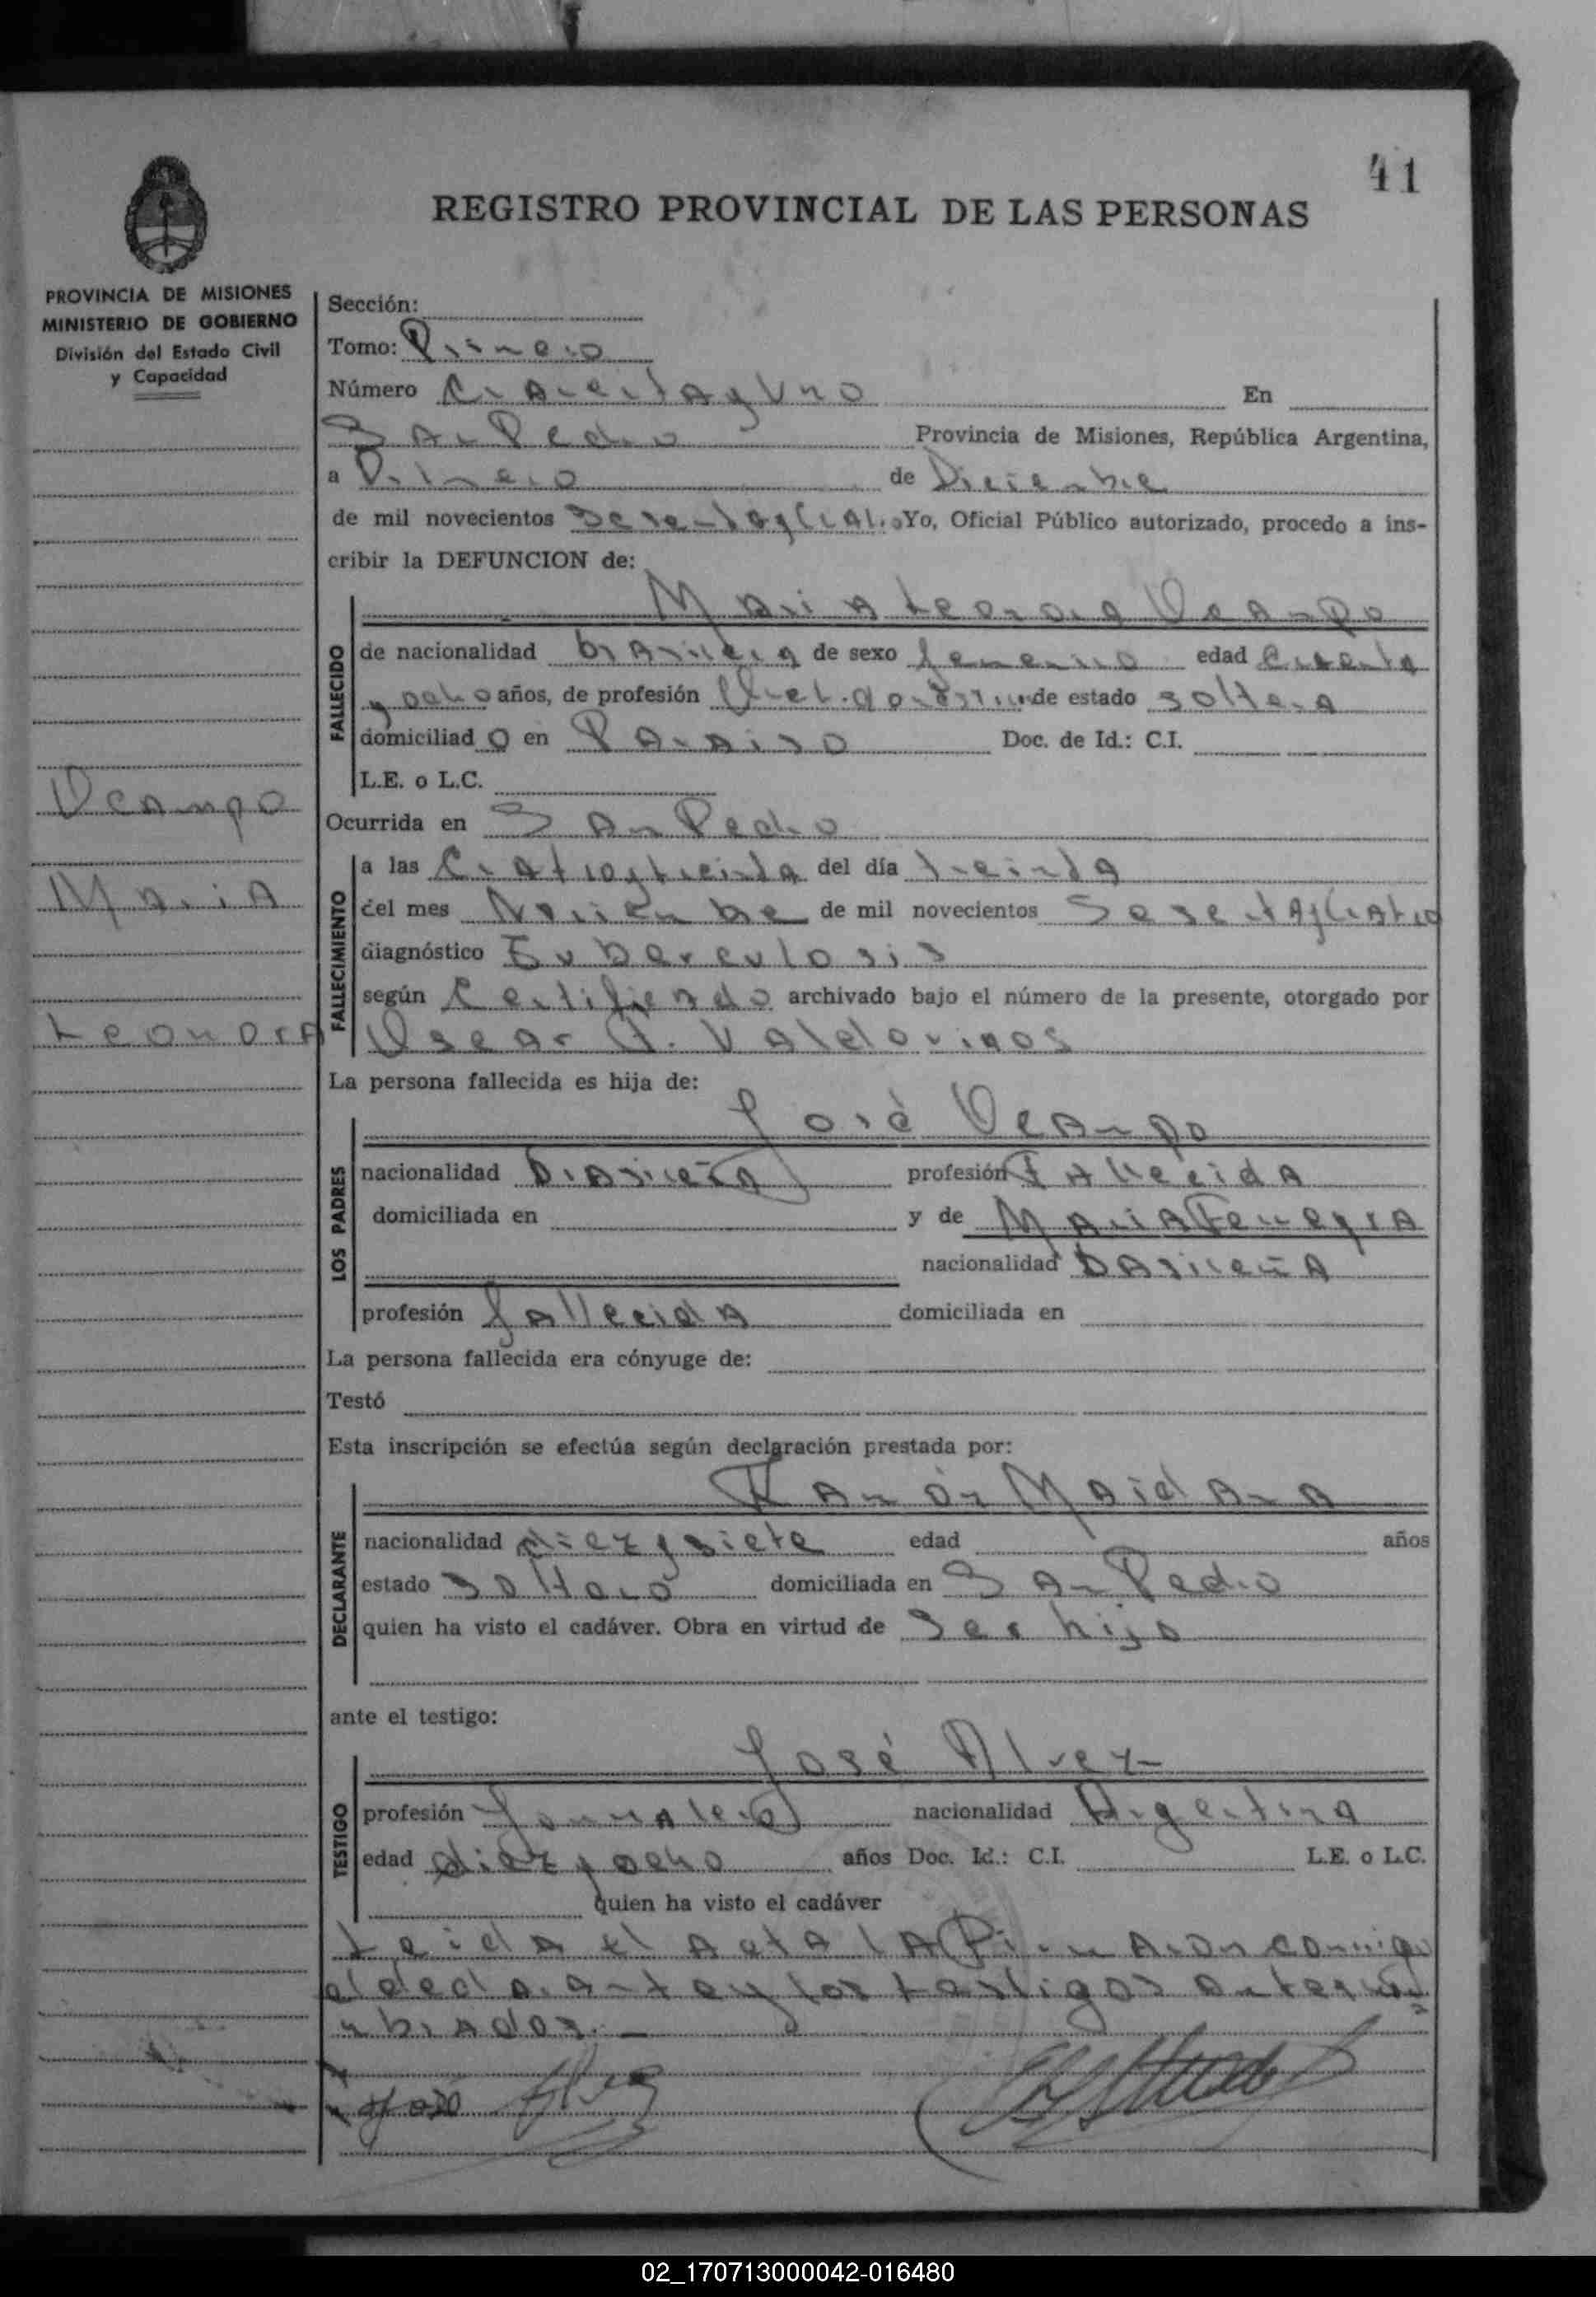 41
REGISTRO PROVINCIAL DE LAS PERSONAS
PROVINCIA DE MISIONES
MINISTERIO DE GOBIERNO
División del Estado Civil
y Capacidad
Ocampo
Maria
Leonora
Sección:
Tomo: Primero
Número Cuarentayuno En
San Pedro Provincia de Misiones, República Argentina,
a Primero de Diciembre
de mil novecientos Yo, Oficial Público autorizado, procedo a ins-
cribir la DEFUNCION de:
Maria Leonora Ocampo
FALLECIDO
de nacionalidad brasilera de sexo femenino edad
y ocho años, de profesión de estado soltera
domiciliad o en Paraiso Doc. de Id.: C.I.
L.E. o L.C.
Ocurrida en San Pedro
FALLECIMIENTO
a las Cuatroytreinta del día treinta
del mes Noviembre de mil novecientos Sesentaycuatro
diagnóstico Tuberculosis
según archivado bajo el número de la presente, otorgado por
Oscar A. Valdovinos
La persona fallecida es hija de:
José Ocampo
LOS PADRES
nacionalidad Brasileña profesión Fallecida
domiciliada en y de Maria
nacionalidad Basileña
profesión fallecida domiciliada en
La persona fallecida era cónyuge de:
Testó
Esta inscripción se efectúa según declaración prestada por:
Ramón Maidana
DECLARANTE
nacionalidad diez y siete edad años
estado soltero domiciliada en San Pedro
quien ha visto el cadáver. Obra en virtud de Ser hijo
ante el testigo:
José Alvez
TESTIGO
profesión Jornalero nacionalidad Argentina
edad diez y ocho años Doc. Id.: C.I. L.E. o L.C.
quien ha visto el cadáver
Leida el acta la Firmaron conmigo
el declarante y los testigos antes
nbrados.
José Alvez
02_170713000042-016480